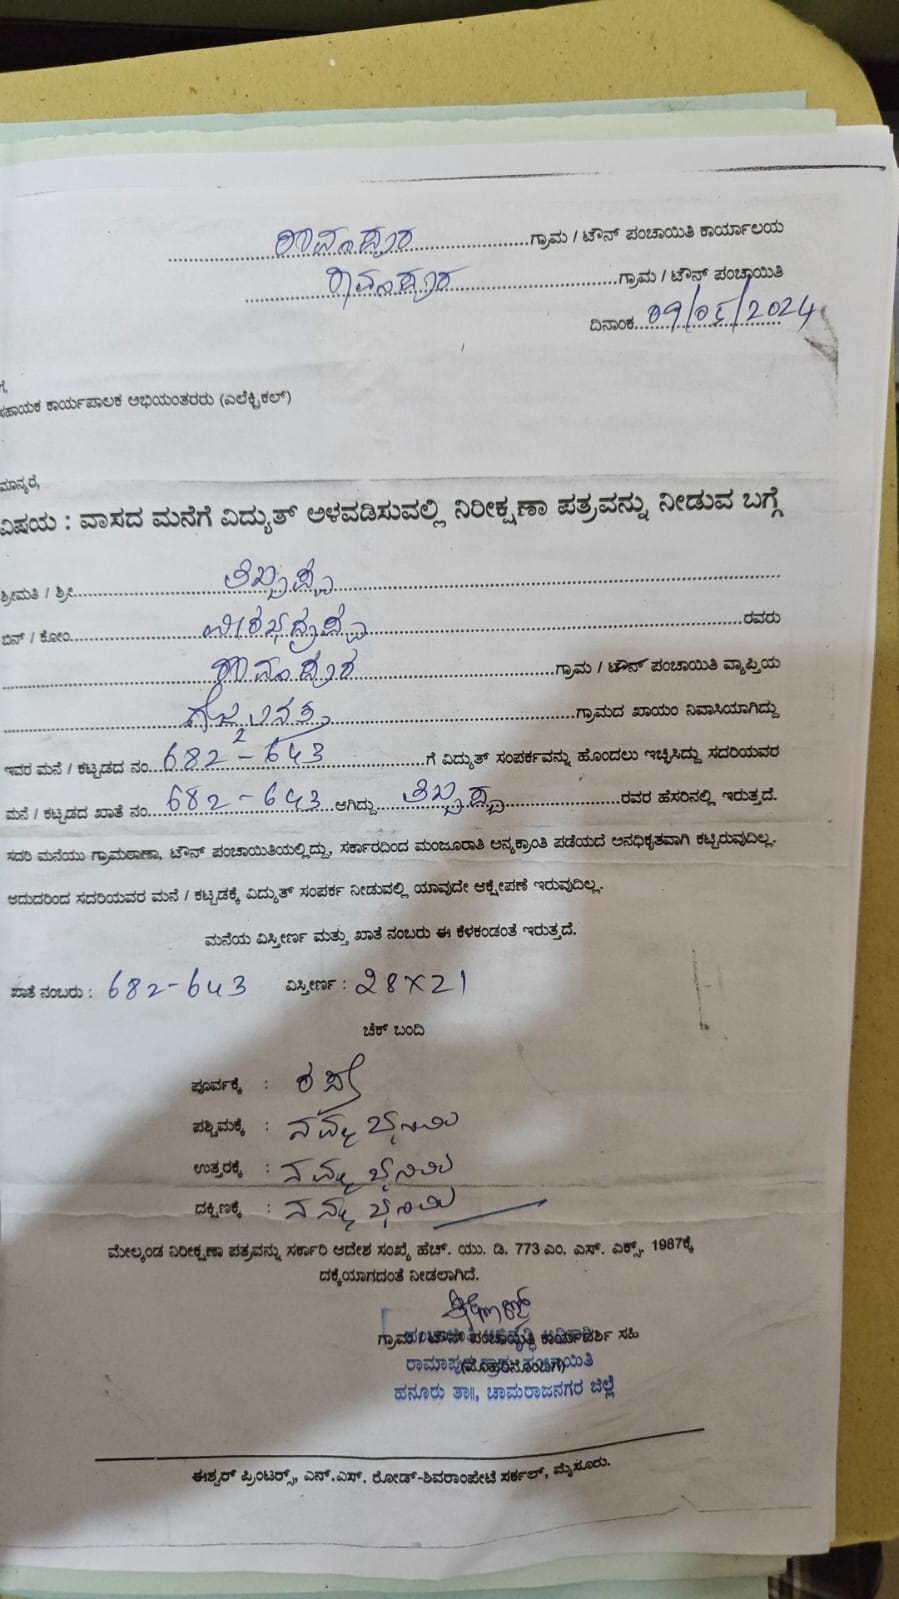 ರಾಮಾಪುರ ಗ್ರಾಮ / ಟೌನ್ ಪಂಚಾಯಿತಿ ಕಾರ್ಯಾಲಯ
ರಾಮಾಪುರ ಗ್ರಾಮ / ಟೌನ್ ಪಂಚಾಯಿತಿ
ದಿನಾಂಕ 09/05/2024
ಗೆ,
ಸಹಾಯಕ ಕಾರ್ಯಪಾಲಕ ಅಭಿಯಂತರರು (ಎಲೆಕ್ಟ್ರಿಕಲ್)
ಮಾನ್ಯರೆ,
ವಿಷಯ : ವಾಸದ ಮನೆಗೆ ವಿದ್ಯುತ್ ಅಳವಡಿಸುವಲ್ಲಿ ನಿರೀಕ್ಷಣಾ ಪತ್ರವನ್ನು ನೀಡುವ ಬಗ್ಗೆ
ಶ್ರೀಮತಿ / ಶ್ರೀ
ಬಿನ್ / ಕೋಂ ವೀರಭದ್ರಪ್ಪ ರವರು
ರಾಮಾಪುರ ಗ್ರಾಮ / ಟೌನ್ ಪಂಚಾಯಿತಿ ವ್ಯಾಪ್ತಿಯ
ಗ್ರಾಮದ ಖಾಯಂ ನಿವಾಸಿಯಾಗಿದ್ದು
ಇವರ ಮನೆ / ಕಟ್ಟಡದ ನಂ. 682-643 ಗೆ ವಿದ್ಯುತ್ ಸಂಪರ್ಕವನ್ನು ಹೊಂದಲು ಇಚ್ಛಿಸಿದ್ದು ಸದರಿಯವರ
ಮನೆ / ಕಟ್ಟಡದ ಖಾತೆ ನಂ. 682-643 ಆಗಿದ್ದು ರವರ ಹೆಸರಿನಲ್ಲಿ ಇರುತ್ತದೆ.
ಸದರಿ ಮನೆಯು ಗ್ರಾಮಠಾಣಾ, ಟೌನ್ ಪಂಚಾಯಿತಿಯಲ್ಲಿದ್ದು, ಸರ್ಕಾರದಿಂದ ಮಂಜೂರಾತಿ ಅನ್ಯಕ್ರಾಂತಿ ಪಡೆಯದೆ ಅನಧಿಕೃತವಾಗಿ ಕಟ್ಟಿರುವುದಿಲ್ಲ.
ಆದುದರಿಂದ ಸದರಿಯವರ ಮನೆ / ಕಟ್ಟಡಕ್ಕೆ ವಿದ್ಯುತ್ ಸಂಪರ್ಕ ನೀಡುವಲ್ಲಿ ಯಾವುದೇ ಆಕ್ಷೇಪಣೆ ಇರುವುದಿಲ್ಲ.
ಮನೆಯ ವಿಸ್ತೀರ್ಣ ಮತ್ತು ಖಾತೆ ನಂಬರು ಈ ಕೆಳಕಂಡಂತೆ ಇರುತ್ತದೆ.
ಖಾತೆ ನಂಬರು : 682-643 ವಿಸ್ತೀರ್ಣ : 28X21
ಚೆಕ್ ಬಂದಿ
ಪೂರ್ವಕ್ಕೆ : ರಸ್ತೆ
ಪಶ್ಚಿಮಕ್ಕೆ : ನಮ್ಮ ಜಮೀನು
ಉತ್ತರಕ್ಕೆ : ನಮ್ಮ ಜಮೀನು
ದಕ್ಷಿಣಕ್ಕೆ : ನಮ್ಮ ಜಮೀನು
ಮೇಲ್ಕಂಡ ನಿರೀಕ್ಷಣಾ ಪತ್ರವನ್ನು ಸರ್ಕಾರಿ ಆದೇಶ ಸಂಖ್ಯೆ ಹೆಚ್. ಯು. ಡಿ. 773 ಎಂ. ಎಸ್. ಎಕ್ಸ್. 1987ಕ್ಕೆ
ದಕ್ಕೆಯಾಗದಂತೆ ನೀಡಲಾಗಿದೆ.
ಗ್ರಾಮ / ಟೌನ್ ಪಂಚಾಯಿತಿ ಕಾರ್ಯದರ್ಶಿ ಸಹಿ
(ಮೊಹರಿನೊಂದಿಗೆ)
ರಾಮಾಪುರ ಗ್ರಾಮ ಪಂಚಾಯಿತಿ
ಹನೂರು ತಾ॥, ಚಾಮರಾಜನಗರ ಜಿಲ್ಲೆ
ಈಶ್ವರ್ ಪ್ರಿಂಟರ್ಸ್, ಎನ್.ಎಸ್. ರೋಡ್-ಶಿವರಾಂಪೇಟೆ ಸರ್ಕಲ್, ಮೈಸೂರು.